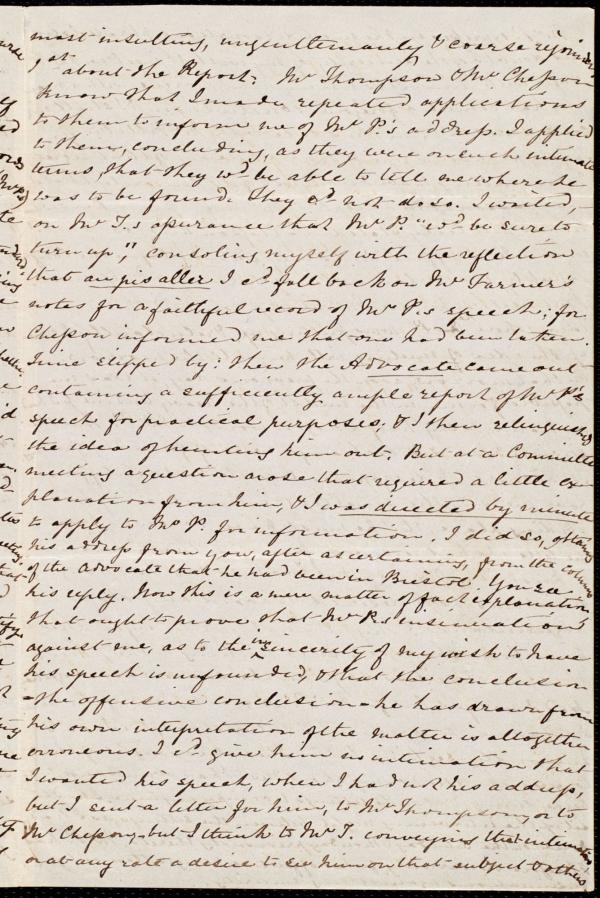 most insulting, ungentlemanly & coarse rejoinder
about the Report. Mr Thompson & Mr Chesson
know that I made repeated applications
to them to inform me of Mr P.'s address. I applied
to them, concluding, as they were on such intimate
terms, that they wd be able to tell me where he
was to be found. They cd not do so. I waited,
on Mr T.s assurance that Mr P. "wd be sure to
turn up", consoling myself with the reflection
that au pis aller I cd fall back on Mr Farmer's
notes for a faithful record of Mr P.s speech; for
Chesson informed me that one had been taken.
Time slipped by: then the Advocate came out
containing a sufficiently ample report of Mr P's
speech for practical purposes: & I then relinquished
the idea of hunting him out. But at a Committee
meeting a question arose that required a little ex-
planation from him, & I was directed by minute
to apply to Mr P. for information. I did so, obtaining
his address from you, after ascertaining, from the columns
of the Advocate that he had been in Bristol. You saw
his reply. Now this is a mere matter of fact explanation
that ought to prove that Mr P.s insinuation
against me, as to the insincerity of my wish to have
his speech is unfounded, & that the conclusion
- the offensive conclusion he has drawn from
his own interpretation of the matter is altogether
erroneous. I cd give him no intimation that
I wanted his speech, when I had not his address,
but I sent a letter for him, to Mr Thompson, or to
Mr Chesson, but I think to Mr T. conveying that intimation,
or at any rate a desire to see him on that subject & others